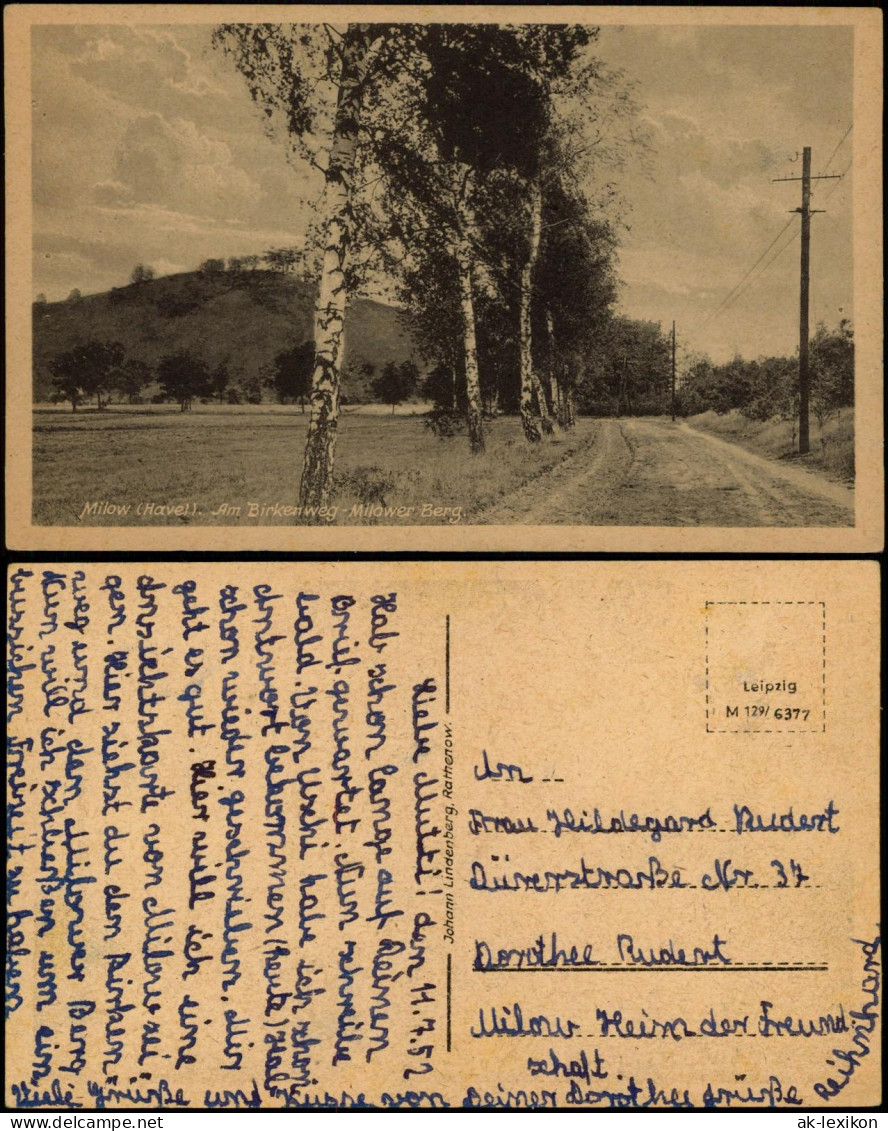 Milow (Havel). Am Birkenweg-Milower Berg.
Liebe Mutti! den 11.7.52
Hab schon lange auf Deinen
Brief gewartet. Nun schreibe
bald. Von Uschi habe ich schon
Antwort bekommen (heute) Hab
schon wieder geschrieben. Mir
geht es gut. Hier will ich eine
Ansichtskarte von Milow sei
gen. Hier siehst du den Birken
weg und den Milower Berg
Nun will ich schließen um ein
bwschen Freizeit zu haben
Viele Grüße und Küsse von Deiner Dorothee grüße Reihnhard
Johann Lindenberg, Rathenow.
Leipzig
M 129/ 6377
An
Frau Hildegard Rudert
Dürerstraße Nr. 37
Dorothee Rudert
Milow Heim der Freund-
schaft.
ak-lexikon